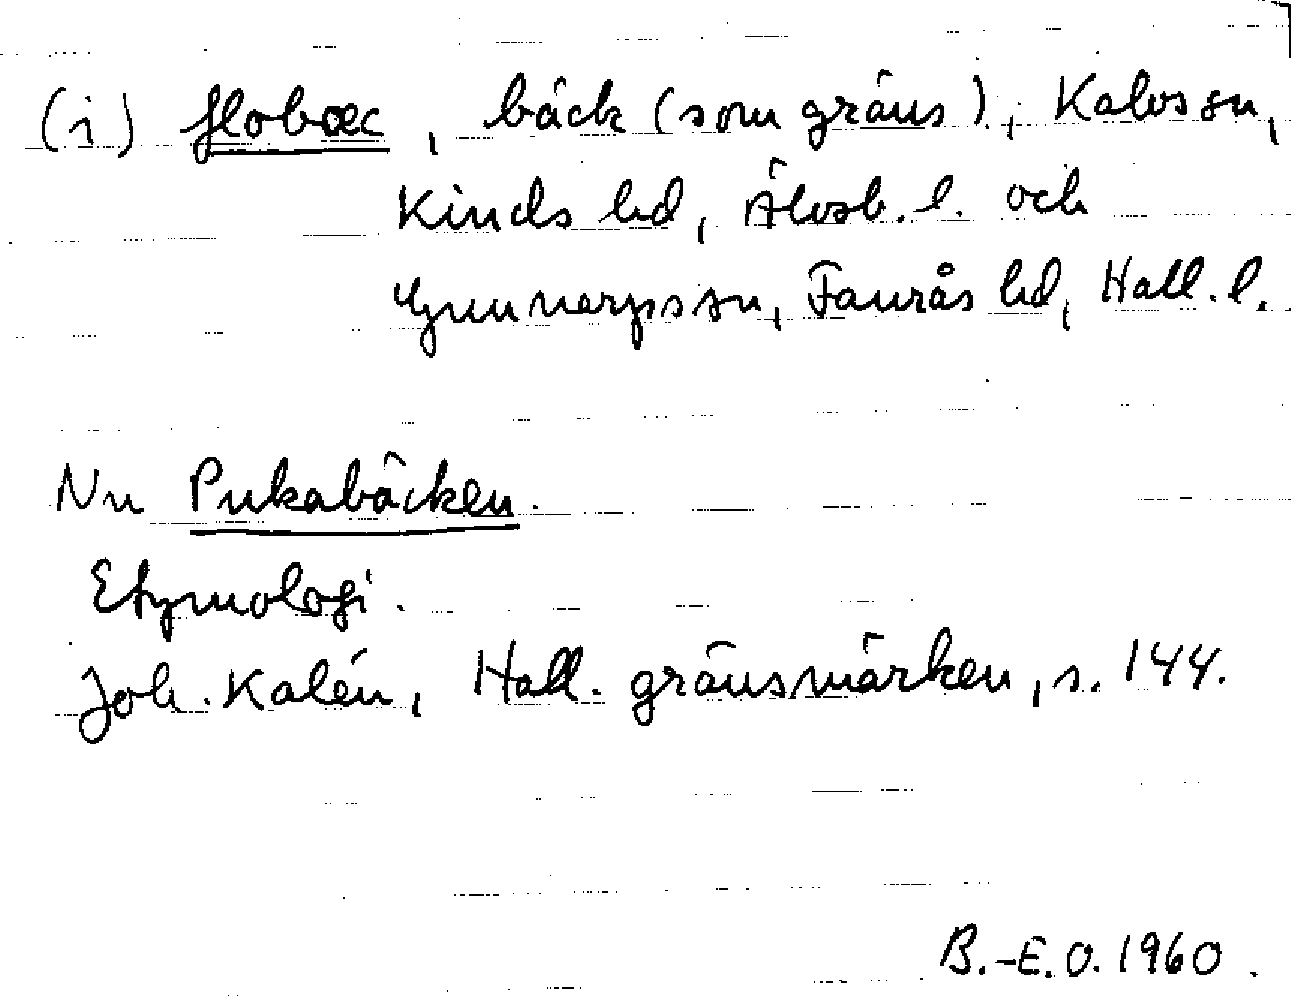 (i) flobæc, bäck (som gräns), Kalvs sn,
Kinds hd, Älvsb. l. och
Gunnarps sn, Faurås hd, Hall. l.
Nu Pukabäcken.
Etymologi.
Joh. Kalén, Hall. gränsmärken, s. 144.
B.-E. O. 1960.